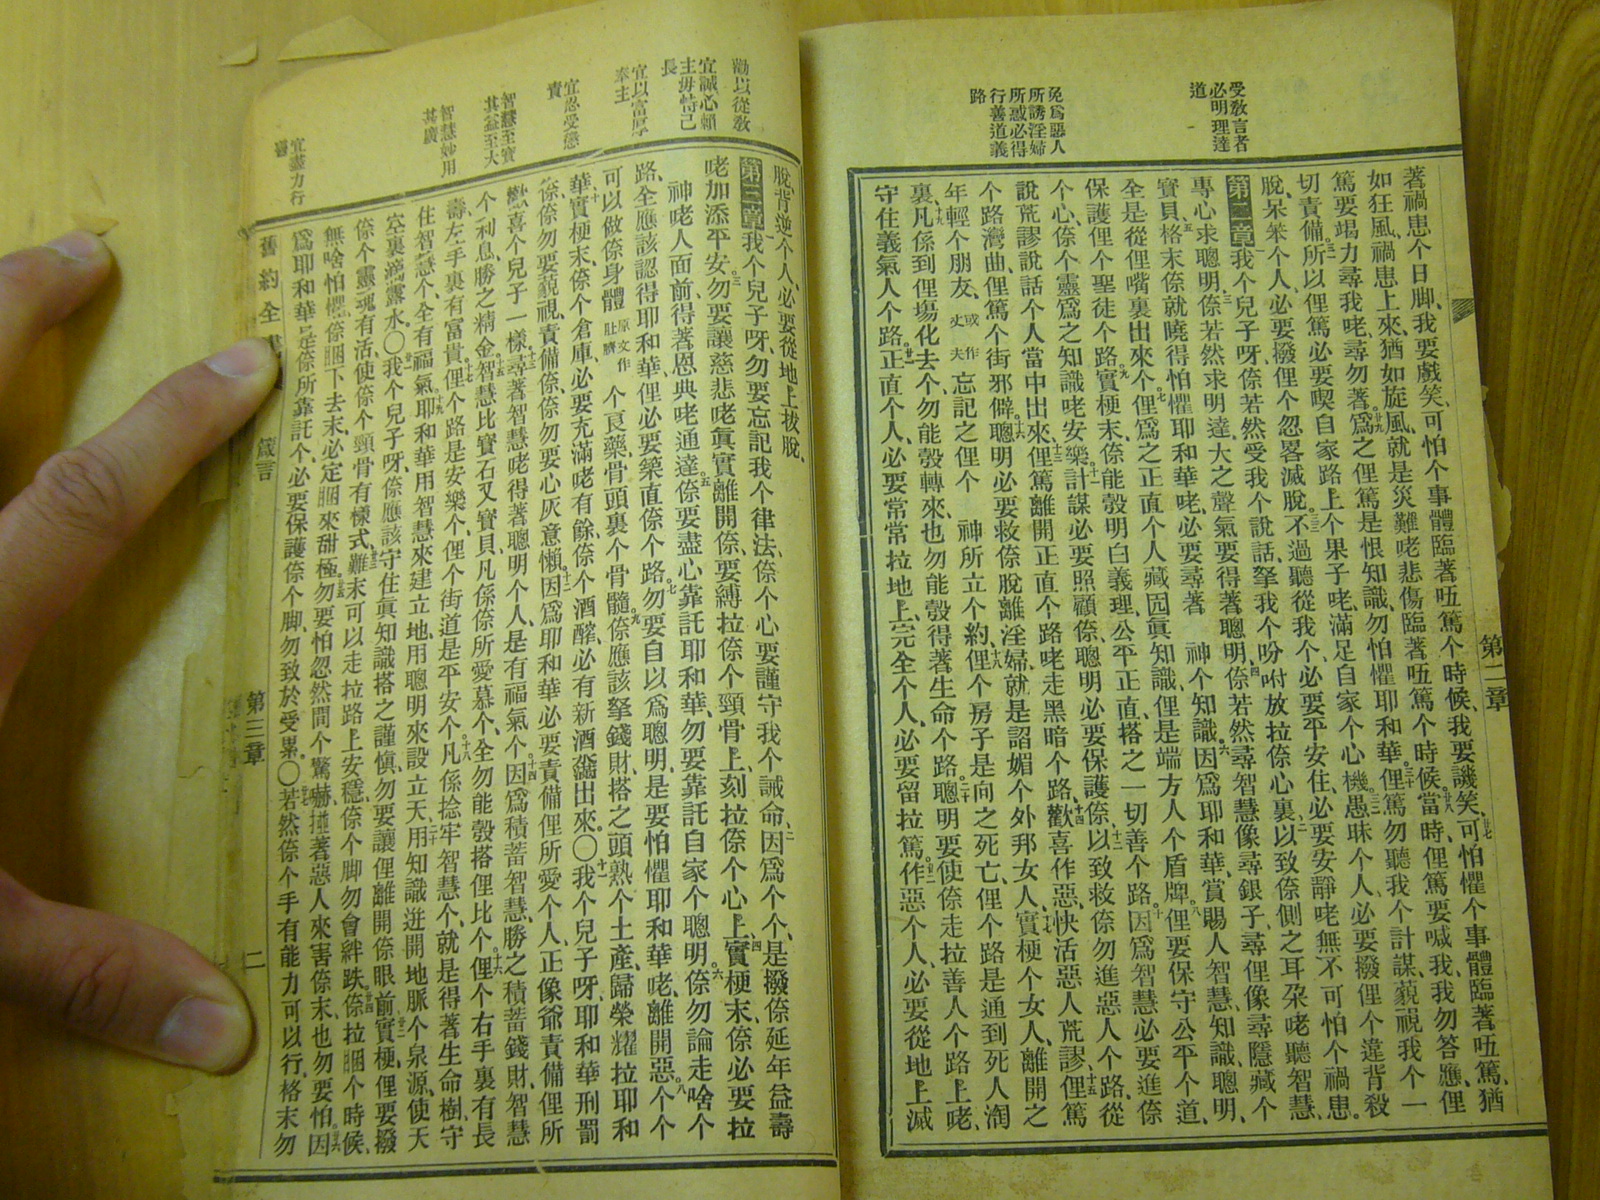 受敎言者
必明理達
道
免爲惡人
所誘淫婦
所惑必得
行善道義
路
第二章
著禍患个日脚、我要戲笑、可怕个事體臨著㕶篤个時候、我要譏笑、可怕懼个事體臨著㕶篤、猶
如狂風、禍患上來、猶如旋風、就是災難咾悲傷臨著㕶篤个時候、當時俚篤要喊我、我勿答應、俚
篤要竭力尋我咾、尋勿著、爲之俚篤是恨知識、勿怕懼耶和華、俚篤勿聽我个計謀、藐視我个一
切責備、所以俚篤必要喫自家路上个果子咾、滿足自家个心機、愚昧个人、必要撥俚个違背殺
脫、呆笨个人、必要撥俚个忽畧滅脫、不過聽從我个、必要平安住、必要安靜咾無不可怕个禍患。
第二章我个兒子呀、倷若然受我个說話、拏我个吩咐放拉倷心裏、以致倷側之耳朶咾聽智慧、
專心求聰明、倷若然求明達、大之聲氣要得著聰明、倷若然尋智慧像尋銀子、尋俚像尋隱藏个
寶貝、格末倷就曉得怕懼耶和華咾、必要尋著 神个知識、因爲耶和華、賞賜人智慧、知識、聰明、
全是從俚嘴裏出來个、俚爲之正直个人藏囥眞知識、俚是端方人个盾牌、俚要保守公平个道、
保護俚个聖徒个路、實梗末、倷能彀明白義理、公平正直、搭之一切善个路、因爲智慧必要進倷
个心、倷个靈爲之知識咾安樂、計謀必要照顧倷、聰明必要保護倷、以致救倷勿進惡人个路、從
說荒謬說話个人當中出來、俚篤離開正直个路咾走黑暗个路、歡喜作惡、快活惡人荒謬、俚篤
个路灣曲、俚篤个街邪僻、聰明必要救倷脫離淫婦、就是諂媚个外邦女人、實梗个女人、離開之
年輕个朋友、或作丈夫忘記之俚个 神所立个約、俚个房子是向之死亡、俚个路是通到死人淘
裏、凡係到俚塲化去个、勿能彀轉來、也勿能彀得著生命个路、聰明要使倷走拉善人个路上咾、
守住義氣人个路、正直个人、必要常常拉地上、完全个人、必要留拉篤、作惡个人、必要從地上滅
勸以從敎
宜誠必賴
主毋恃己
長
宜以富厚
奉主
宜忍受懲
責
智慧至寶
其益至大
智慧妙用
其廣
宜盡力行
善
脫、背逆个人、必要從地上拔脫、
第三章我个兒子呀、勿要忘記我个律法、倷个心要謹守我个誡命、因爲个个、是撥倷延年益壽
咾加添平安、勿要讓慈悲咾眞實離開倷、要縛拉倷个頸骨上、刻拉倷个心上、實梗末、倷必要拉
神咾人面前得著恩典咾通達、倷要盡心靠託耶和華、勿要靠託自家个聰明、倷勿論走啥个
路、全應該認得耶和華、俚必要築直倷个路、勿要自以爲聰明、是要怕懼耶和華咾、離開惡、个个
可以做倷身體原文作肚臍个良藥、骨頭裏个骨髓、倷應該拏錢財、搭之頭熟个土產、歸榮耀拉耶和
華、實梗末、倷个倉庫、必要充滿咾有餘、倷个酒醡、必有新酒滿出來。〇我个兒子呀、耶和華刑罰
倷、倷勿要藐視、責備倷、倷勿要心灰意懶、因爲耶和華必要責備俚所愛个人、正像爺責備俚所
歡喜个兒子一樣、尋著智慧咾得著聰明个人、是有福氣个、因爲積蓄智慧、勝之積蓄錢財、智慧
个利息、勝之精金、智慧比寶石又寶貝、凡係倷所愛慕个、全勿能彀搭俚比个、俚个右手裏有長
壽、左手裏有富貴、俚个路是安樂个、俚个街道是平安个、凡係捻牢智慧个、就是得著生命樹、守
住智慧个、全有福氣、耶和華用智慧來建立地、用聰明來設立天、用知識迸開地脈个泉源、使天
空裏滴露水。〇我个兒子呀、倷應該守住眞知識搭之謹愼、勿要讓俚離開倷眼前、實梗、俚要撥
倷个靈魂有活、使倷个頸骨有樣式、難末可以走拉路上安穩、倷个脚勿會絆跌、倷拉睏个時候、
無啥怕懼、倷睏下去末、必定睏來甜極、勿要怕忽然間个驚嚇、撞著惡人來害倷末、也勿要怕、因
爲耶和華是倷所靠託个、必要保護倷个脚、勿致於受累。〇若然倷个手有能力可以行、格末勿
舊約全書 箴言 第三章 二